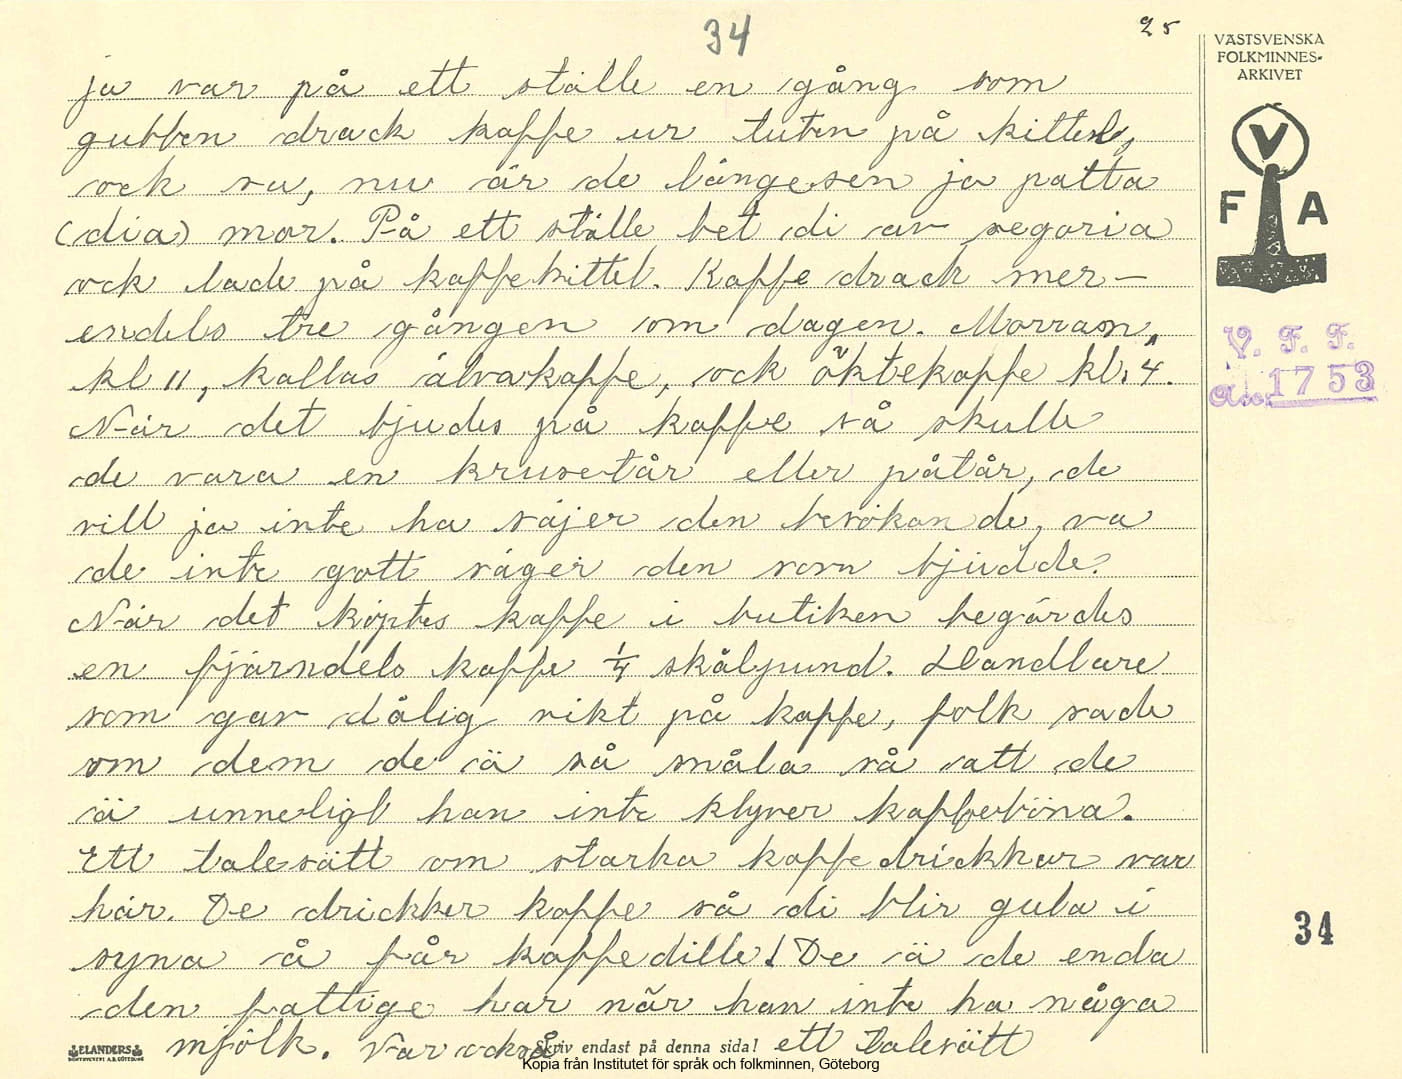 34
25
VÄSTSVENSKA
FOLKMINNES-
ARKIVET
V
F A
V. F. F.
Acc. 1753
ja var på ett ställe en gång som
gubben drack kaffe ur tuten på kitteln,
ock sa, nu är de längesen ja patta
(dia) mor. På ett ställe bet di av segoria
ock lade på kaffekittel. Kaffe drack mer-
endels tre gången om dagen. Morraon,
kl 11, kallas älvakaffe, ock öktekaffe kl. 4.
När det bjudes på kaffe så skulle
de vara en krusetår eller påtår, de
vill ja inte ha säjer den besökande, va
de inte gott säger den som bjudde?
När det köptes kaffe i butiken begärdes
en fjärndels kaffe 1/4 skålpund. Handlare
som gav dålig vikt på kaffe, folk sade
om dem de ä så snåla så att de
ä unneligt han inte klyver kaffeböna.
Ett talesätt om starka kaffedrickkar var
här. De drickker kaffe så di blir gula i
syna å får kaffedille! De ä de enda
den fattige har när han inte ha någa
mjölk. Var också ett Talesätt
ELANDERS
Skriv endast på denna sida!
Kopia från Institutet för språk och folkminnen, Göteborg
34